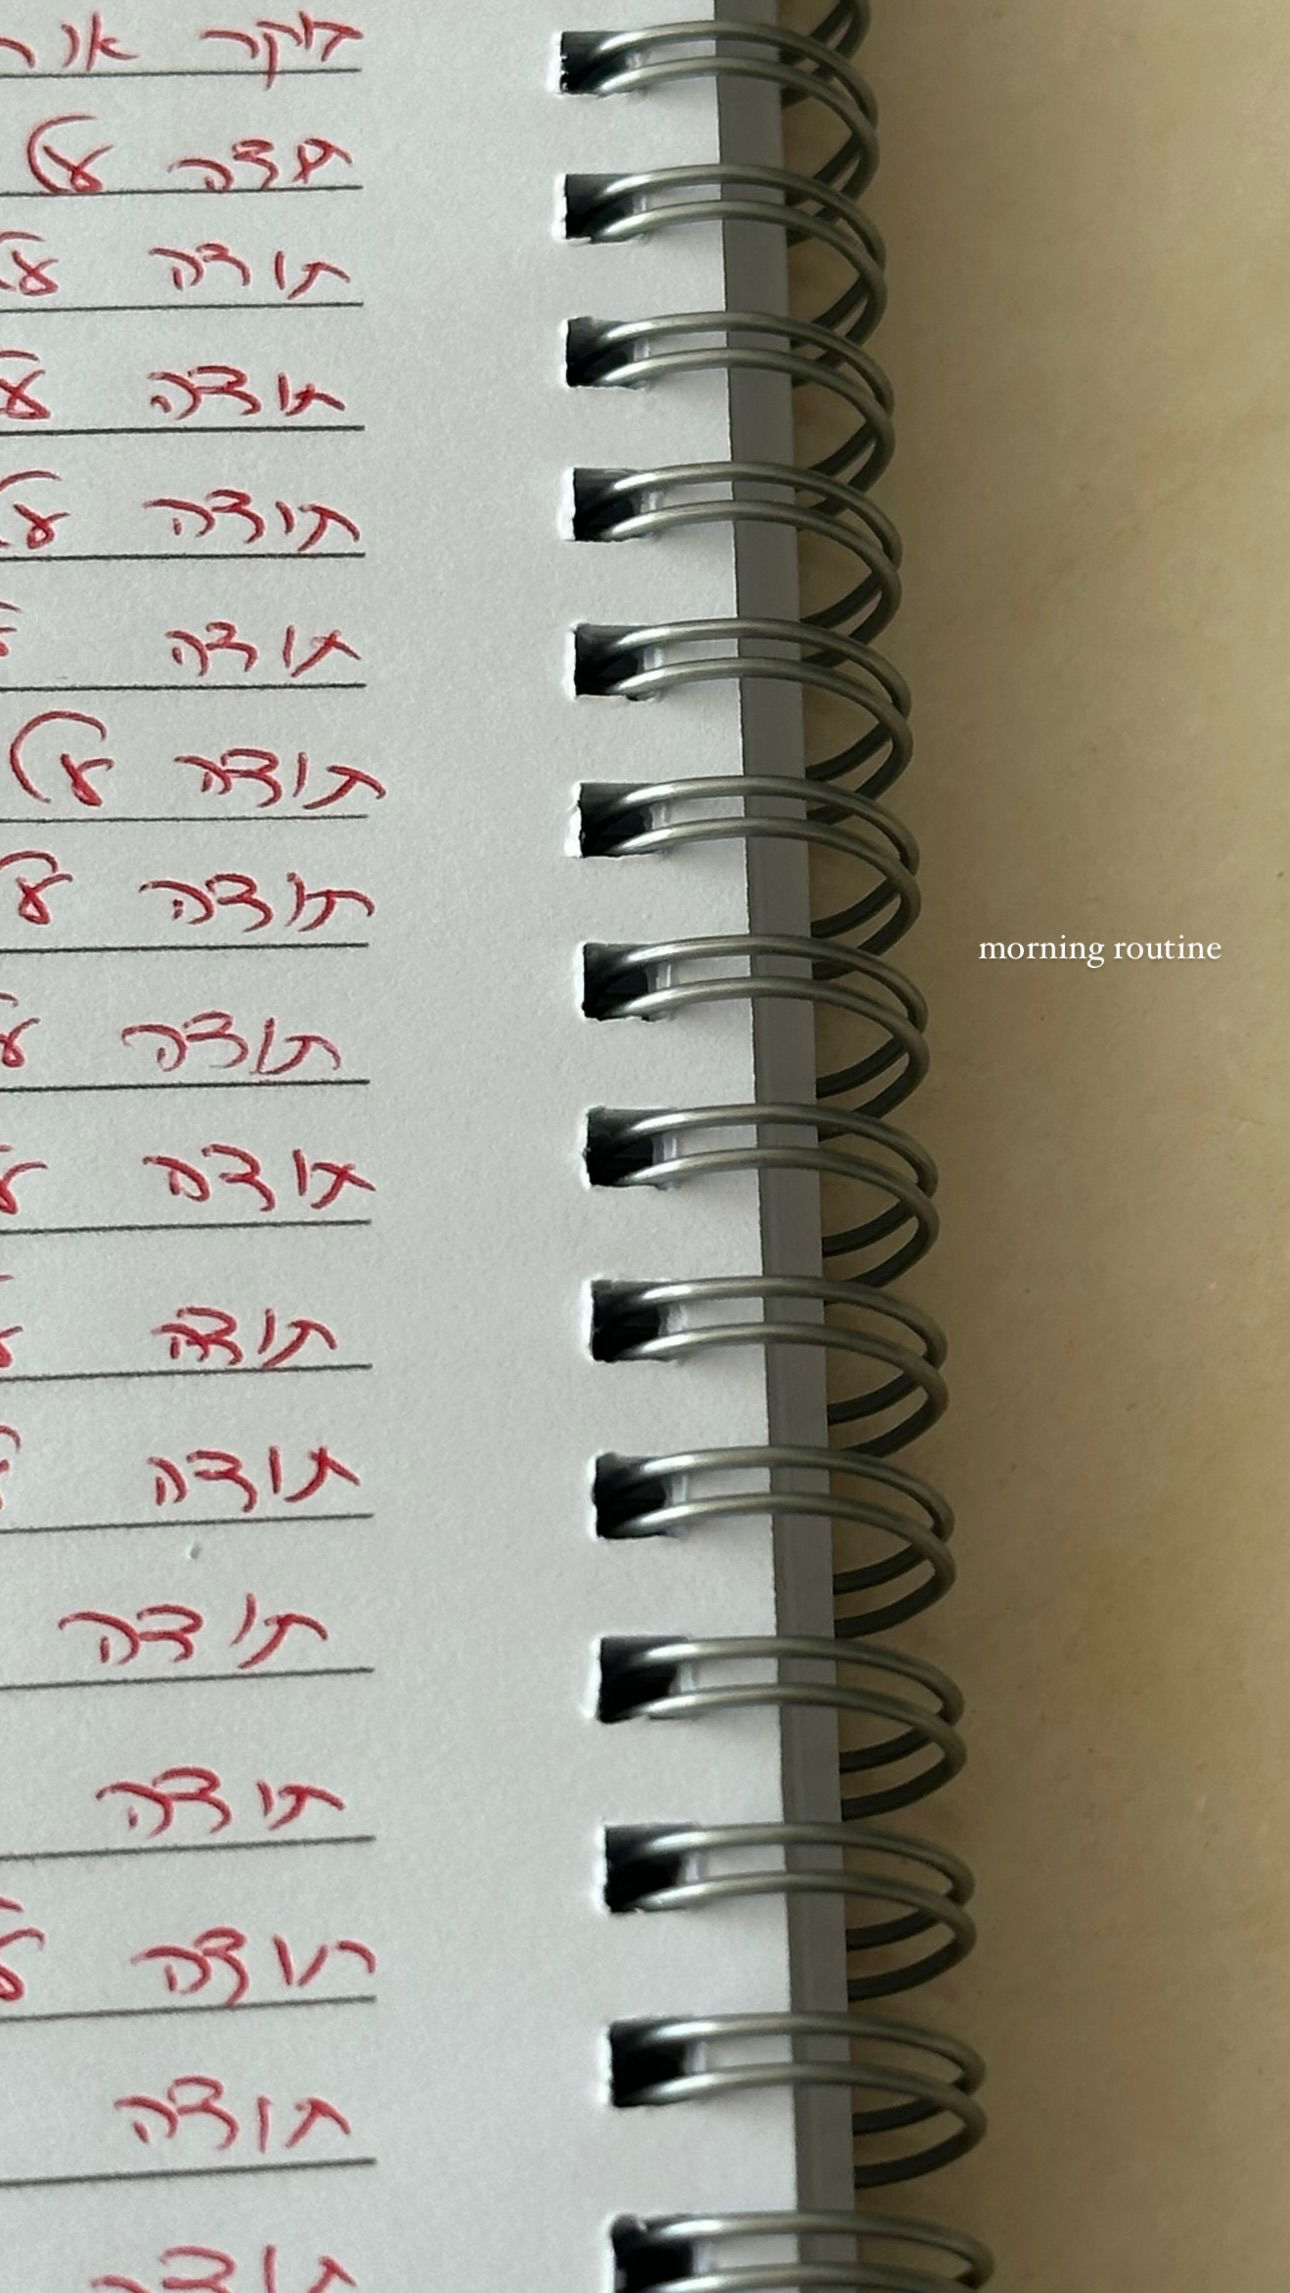 תודה על
תודה
תודה
תודה על
תודה
תודה על
תודה על
תודה
תודה
תודה
תודה
תודה
תודה
תודה
תודה
תודה
morning routine